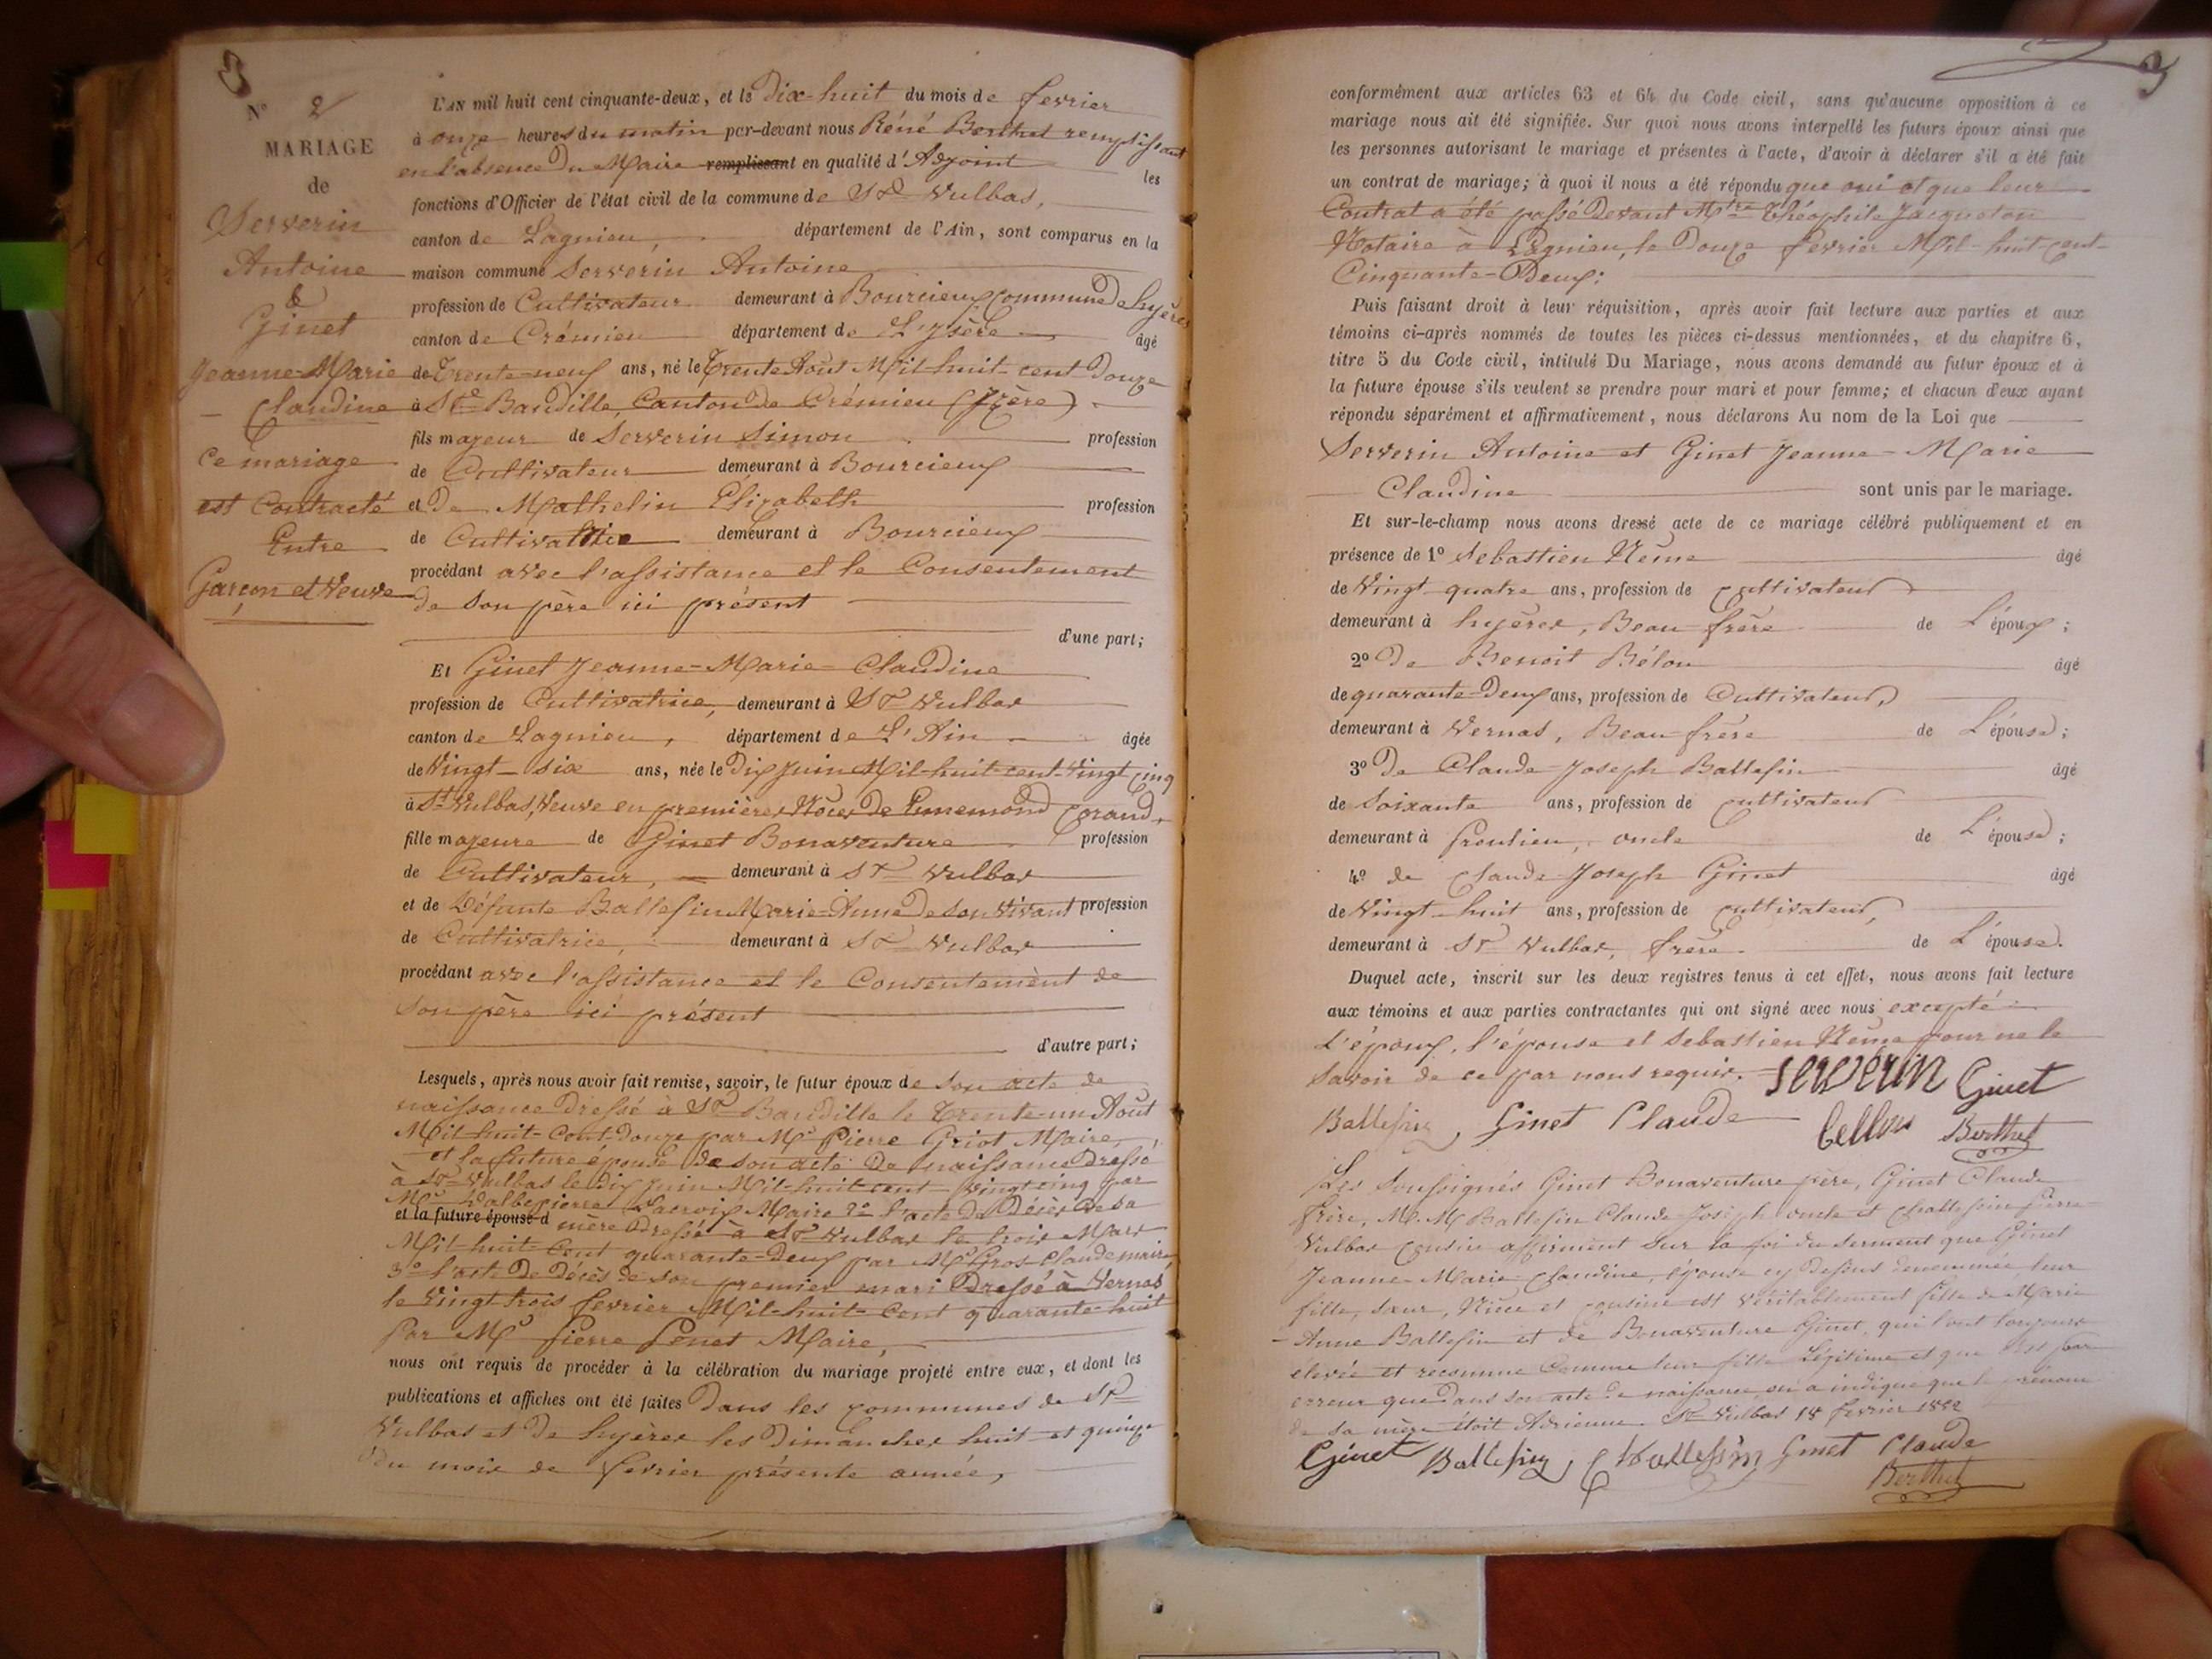 3
N° 2
MARIAGE
de
Serverin
Antoine
&
Ginet
Jeanne-Marie
Claudine
Ce mariage
est Contracté
Entre
Garçon et Veuve
L'AN mil huit cent cinquante-deux, et le Dix-huit du mois de fevrier
à onze heures du matin par-devant nous Réné Berthet remplissant
en l'absence Du Maire remplissant en qualité d'Adjoint les
fonctions d'Officier de l'état civil de la commune de St Vulbas,
canton de Lagnieu, département de l'Ain, sont comparus en la
maison commune Serverin Antoine
profession de Cultivateur demeurant à Bourcieux Commune de hyères
canton de Crémieu département de L'Isère âgé
de Trente-neuf ans, né le Trente Août Mil-huit-cent Douze
à St Baudille, Canton de Crémieu (Isère)
fils majeur de Serverin Simon profession
de Cultivateur demeurant à Bourcieux
et De Mathelin Elizabeth profession
de Cultivatrice demeurant à Bourcieux
procédant avec l'assistance et le Consentement
de son père ici présent
d'une part;
Et Ginet Jeanne-Marie-Claudine
profession de Cultivatrice, demeurant à St Vulbas
canton de Lagnieu, département de L'Ain âgée
de Vingt-six ans, née le Dix Juin Mil-huit-cent-Vingt Cinq
à St Vulbas, Veuve en premières Nôces De Ennemond Corand
fille majeure de Ginet Bonaventure profession
de Cultivateur, demeurant à St Vulbas
et de Défunte Ballefin Marie-Anne De son Vivant profession
de Cultivatrice, demeurant à St Vulbas
procédant avec l'assistance et le Consentement de
son père ici présent
d'autre part;
Lesquels, après nous avoir fait remise, savoir, le futur époux de son acte de
naissance Dressé à St Baudille le Trente-un Août
Mil-huit-Cent-Douze par Mr Pierre Griot Maire,
et la future épouse de son acte De naissance Dressé
à St Vulbas le dix Juin Mil-huit-cent-Vingt cinq par
Mr Dalbepierre Lacroix Maire 2° l'acte De Décès De sa
et la future épouse d mère Dressé à St Vulbas le trois Mars
Mil-huit-Cent quarante-Deux par Mr Gros-Claude maire
3° l'acte De décès de son premier mari Dressé à Vernas
le Vingt trois fevrier Mil-huit-Cent quarante-huit
Par Mr Pierre Penet Maire,
nous ont requis de procéder à la célébration du mariage projeté entre eux, et dont les
publications et affiches ont été faites Dans les communes de St
Vulbas et De hyères les Dimanches huit et quinze
du mois de fevrier présente année,
3
conformément aux articles 63 et 64 du Code civil, sans qu'aucune opposition à ce
mariage nous ait été signifiée. Sur quoi nous avons interpellé les futurs époux ainsi que
les personnes autorisant le mariage et présentes à l'acte, d'avoir à déclarer s'il a été fait
un contrat de mariage; à quoi il nous a été répondu que oui et que leur
Contrat a été passé Devant Mtre Théophile Jacqueton
Notaire à Lagnieu, le Douze fevrier Mil-huit-cent-
Cinquante-Deux;
Puis faisant droit à leur réquisition, après avoir fait lecture aux parties et aux
témoins ci-après nommés de toutes les pièces ci-dessus mentionnées, et du chapitre 6,
titre 5 du Code civil, intitulé Du Mariage, nous avons demandé au futur époux et à
la future épouse s'ils veulent se prendre pour mari et pour femme; et chacun d'eux ayant
répondu séparément et affirmativement, nous déclarons Au nom de la Loi que
Serverin Antoine et Ginet Jeanne-Marie
Claudine sont unis par le mariage.
Et sur-le-champ nous avons dressé acte de ce mariage célébré publiquement et en
présence de 1° Sebastien Nême âgé
de Vingt-quatre ans, profession de cultivateur
demeurant à hyères, Beau-frère de L'époux;
2° De Benoit Bélon âgé
de quarante-Deux ans, profession de Cultivateur,
demeurant à Vernas, Beau-frère de L'épouse;
3° De Claude-Joseph Ballefin âgé
de Soixante ans, profession de cultivateur
demeurant à Proulieu, oncle de L'épouse;
4° de Claude-Joseph Ginet âgé
de Vingt-huit ans, profession de cultivateur,
demeurant à St Vulbas, frère de L'épouse.
Duquel acte, inscrit sur les deux registres tenus à cet effet, nous avons fait lecture
aux témoins et aux parties contractantes qui ont signé avec nous excepté
L'époux, l'épouse et Sebastien Nême pour ne le
Savoir de ce par nous requis. Serverin Ginet
Ballefin, Ginet Claude bellon Berthet
Les Soussignés Ginet Bonaventure père, Ginet Claude
frère, M. M Ballefin Claude-Joseph oncle et Challefin Pierre
Vulbas cousin affirment sur la foi du serment que Ginet
Jeanne-Marie-Claudine, épouse cy Dessus Denommée, leur
fille, sœur, Nièce et cousine est véritablement fille de Marie
-Anne Ballefin et de Bonaventure Ginet, qui l'ont toujours
elevée et reconnue Comme leur fille Légitime et que c'est par
erreur que Dans son acte de naissance, on a indiqué que le prénom
de sa mère étoit Adrienne. St Vulbas 18 fevrier 1852
Ginet Ballefin, Challefin Ginet Claude
Berthet